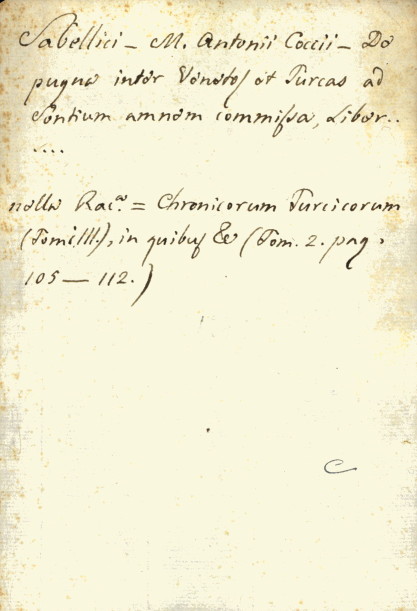 Sabellici – M. Antonii Coccii – De
pugna inter Venetos et Turcas ad
Sontium amnem commissa, Liber..
....
nella Rac.a = Chronicorum Turcicorum
(Tomi III.), in quibus & (Tom. 2. pag.
105 — 112.)
C